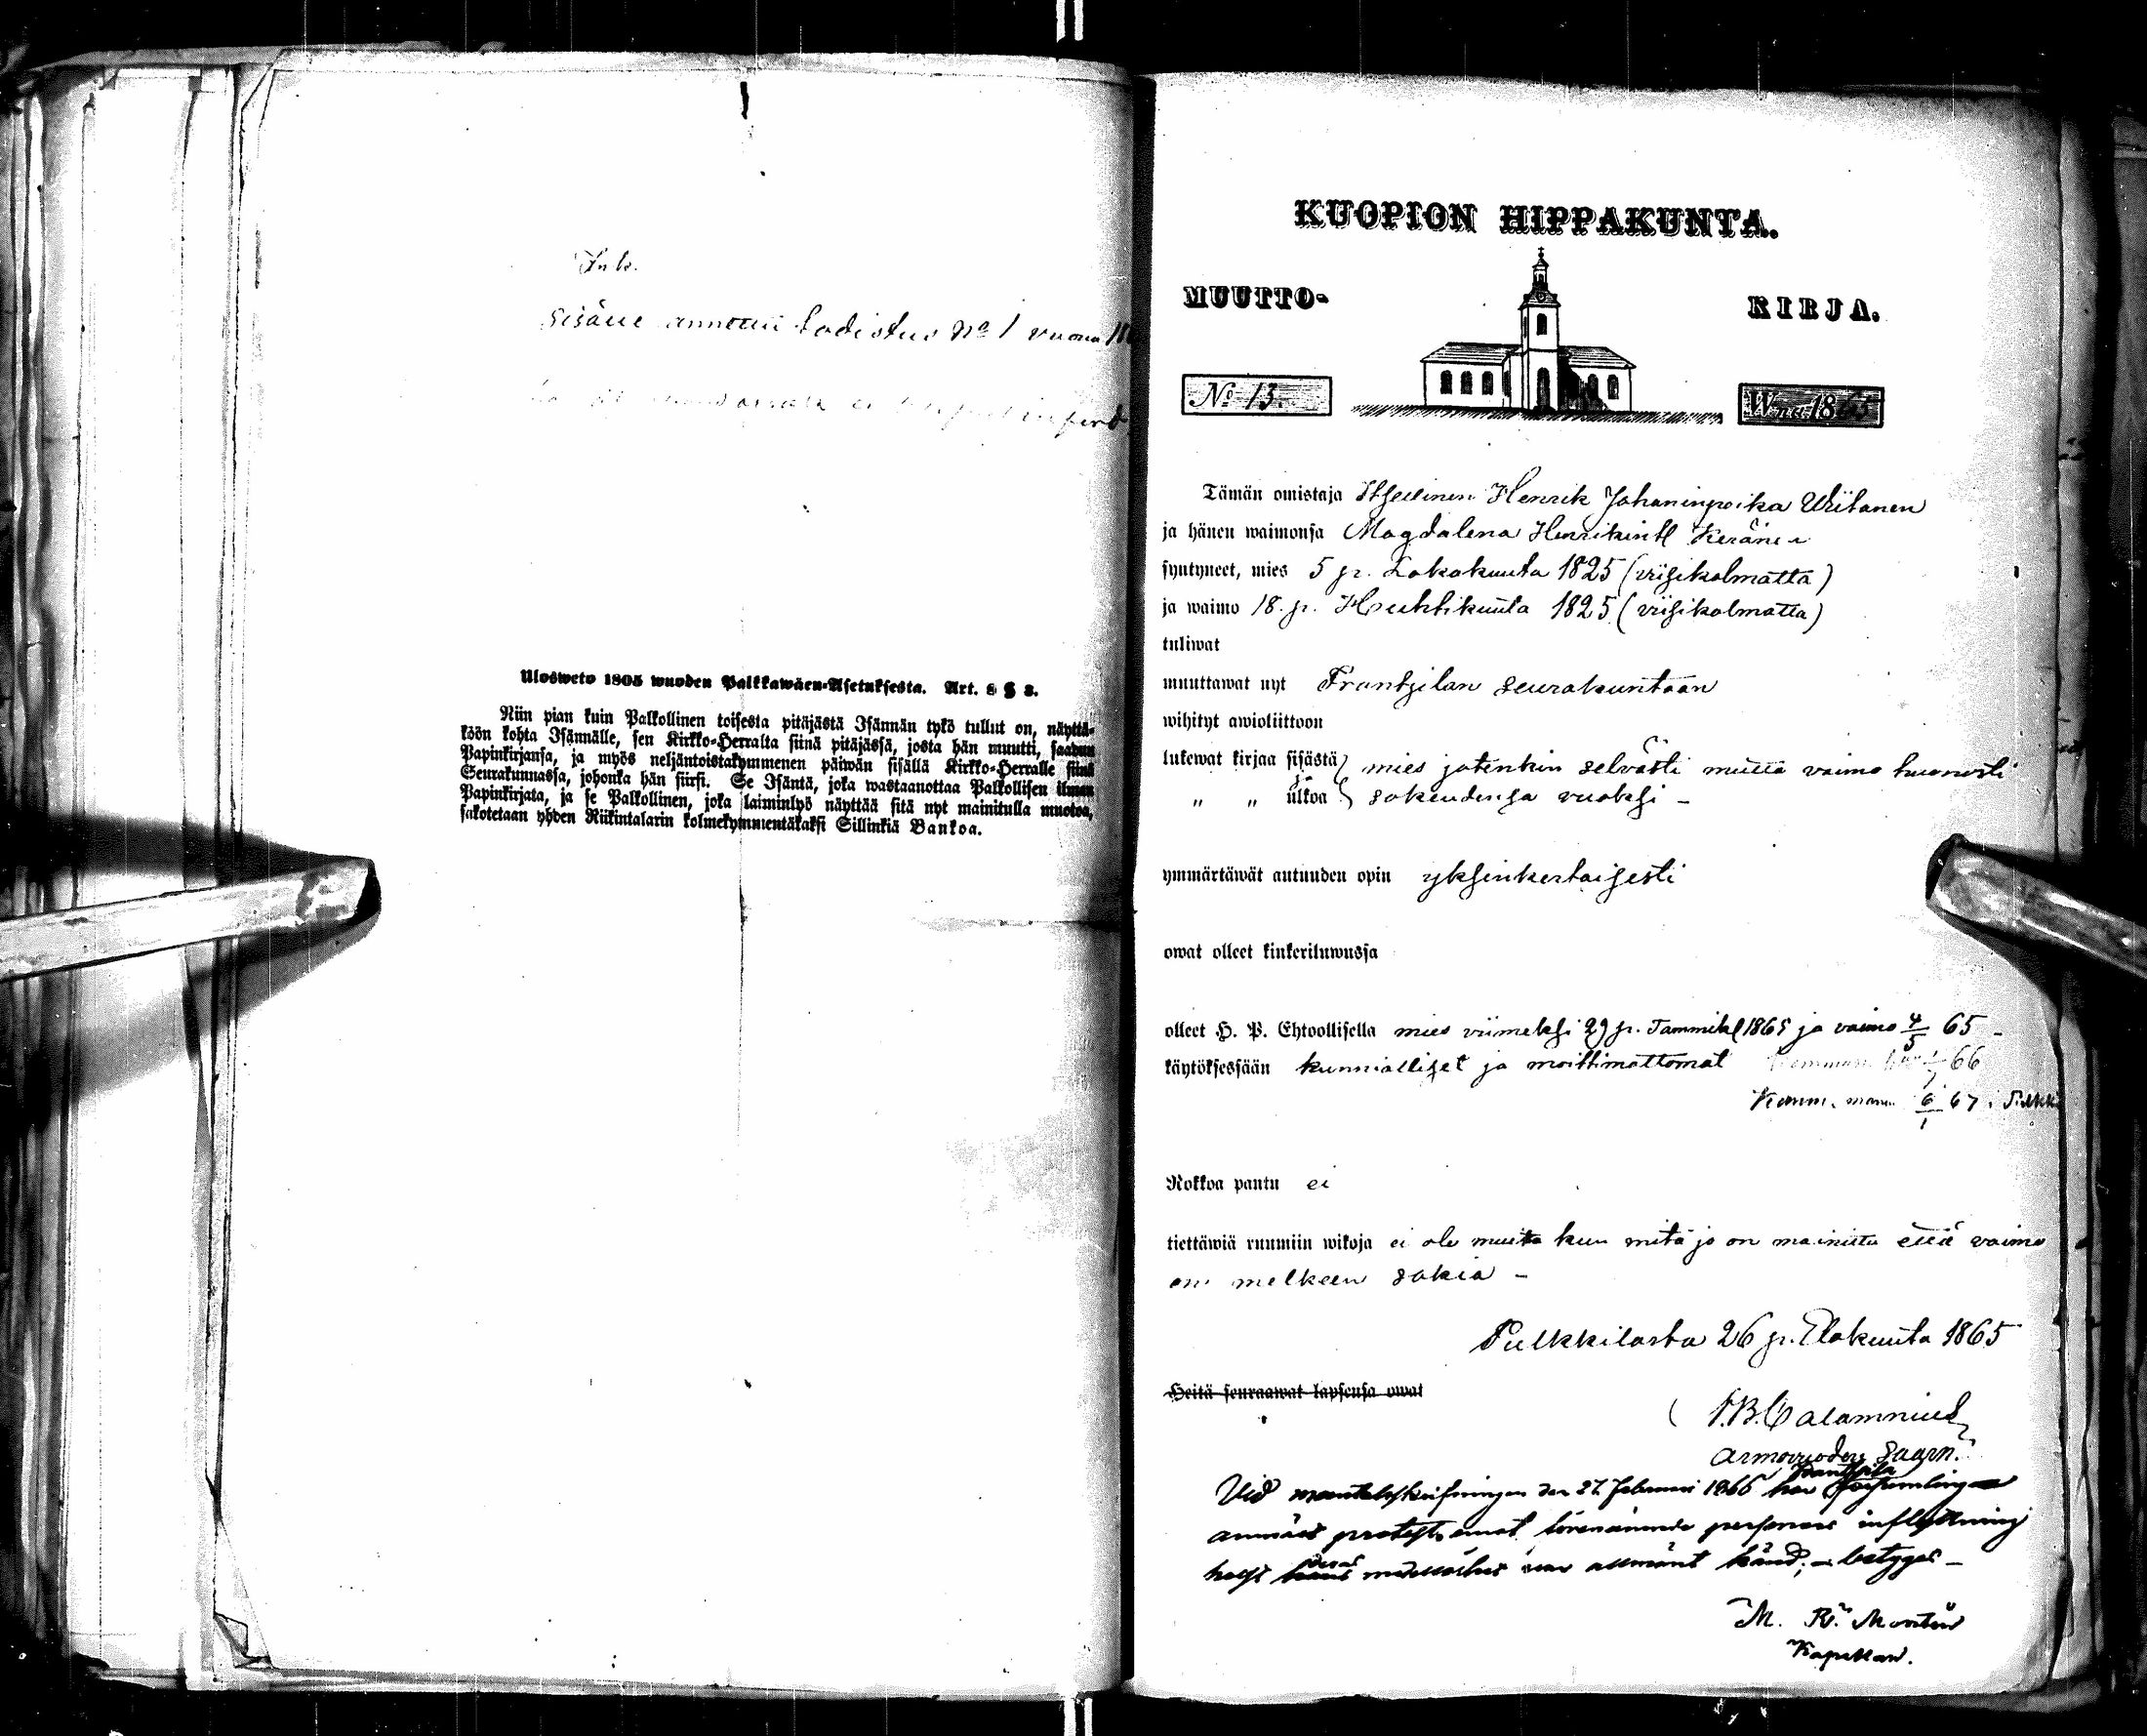 Ink.
Sisälle annettu todistus No 1 vuonna 18
Ulosweto 1805 wuoden Palkkawäen-Asetuksesta. Art. 8 § 3.
Niin pian kuin Palkollinen toisesta pitäjästä Isännän tykö tullut on, näyttä-
köön kohta Isännälle, sen Kirkko-Herralta siinä pitäjässä, josta hän muutti, saadun
Papinkirjansa, ja myös neljäntoistakymmenen päiwän sisällä Kirkko-Herralle siinä
Seurakunnassa, johonka hän siirsi. Se Isäntä, joka wastaanottaa Palkollisen ilman
Papinkirjata, ja se Palkollinen, joka laiminlyö näyttää sitä nyt mainitulla muotoa,
sakotetaan yhden Riikintalarin kolmekymmentäkaksi Sillinkiä Bankoa.
KUOPION HIPPAKUNTA.
MUUTTO- KIRJA.
No 13. Wna 1865
Tämän omistaja Itsellinen Henrik Johaninpoika Wiitanen
ja hänen waimonsa Magdalena Henrikintl Keränen
syntyneet, mies 5 p. Lokakuuta 1825 (viisikolmatta)
ja waimo 18. p. Huhtikuuta 1825 (viisikolmatta)
tuliwat
muuttawat nyt Frantsilan seurakuntaan
wihityt awioliittoon
lukewat kirjaa sisästä mies jotenkin selvästi mutta vaimo huonosti
" " ulkoa sokeudensa vuoksi -
ymmärtäwät autuuden opin yksinkertaisesti
owat olleet kinkeriluwussa
olleet H. P. Ehtoollisella mies viimeksi 29 p. Tammik 1865 ja vaimo 4/5 65 -
käytöksessään kunnialliset ja moittimattomat 66
Komm. mann 6/1 67 i Pulkk
Rokkoa pantu ei
tiettäwiä ruumiin wikoja ei ole muita kun mitä jo on mainittu että vaimo
on melkeen sokia -
Pulkkilasta 26 p. Elokuuta 1865
Heitä seuraawat lapsensa owat
Calamnius
armovuoden saarn.
Vid mantalskrifningen den 27 Februari 1866 har Frantsila församling
anmält protest emot förenämnde personers inflyttning
helst deras medellöshet var allmänt känd; - betygar -
M. R. Montin
Kapellan.